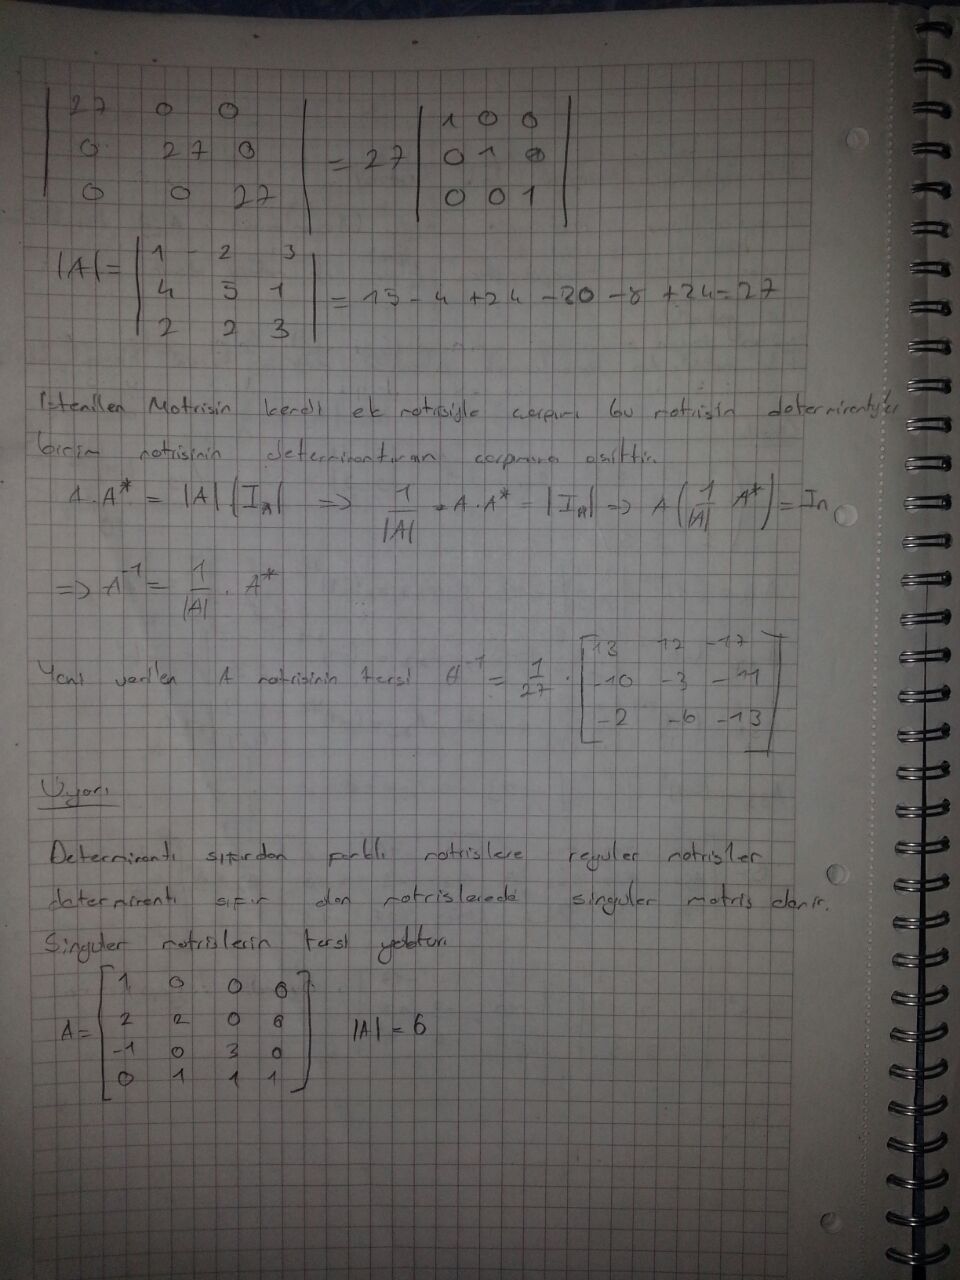 | 27 0 0 |
| 0 27 0 | = 27 | 1 0 0 |
| 0 0 27 | | 0 1 0 |
| 0 0 1 |
|A| = | 1 -2 3 |
| 4 5 1 | = 15 - 4 + 24 - 30 - 8 + 24 = 27
| 2 2 3 |
İstenilen Matrisin kendi ek matrisiyle çarpımı bu matrisin determinantıyla
birim matrisinin determinantının çarpımına eşittir.
A . A* = |A| |In| => 1/|A| . A . A* = |In| => A ( 1/|A| A* ) = In
=> A⁻¹ = 1/|A| . A*
Yani verilen A matrisinin tersi A⁻¹ = 1/27 . [ 13 12 -17
-10 -3 -11
-2 -6 -13 ]
Uyarı
Determinantı sıfırdan farklı matrislere reguler matrisler
determinantı sıfır olan matrislerede singuler matris denir.
Singuler matrislerin tersi yoktur.
A = [ 1 0 0 0
2 2 0 0
-1 0 3 0
0 1 1 1 ] |A| = 6